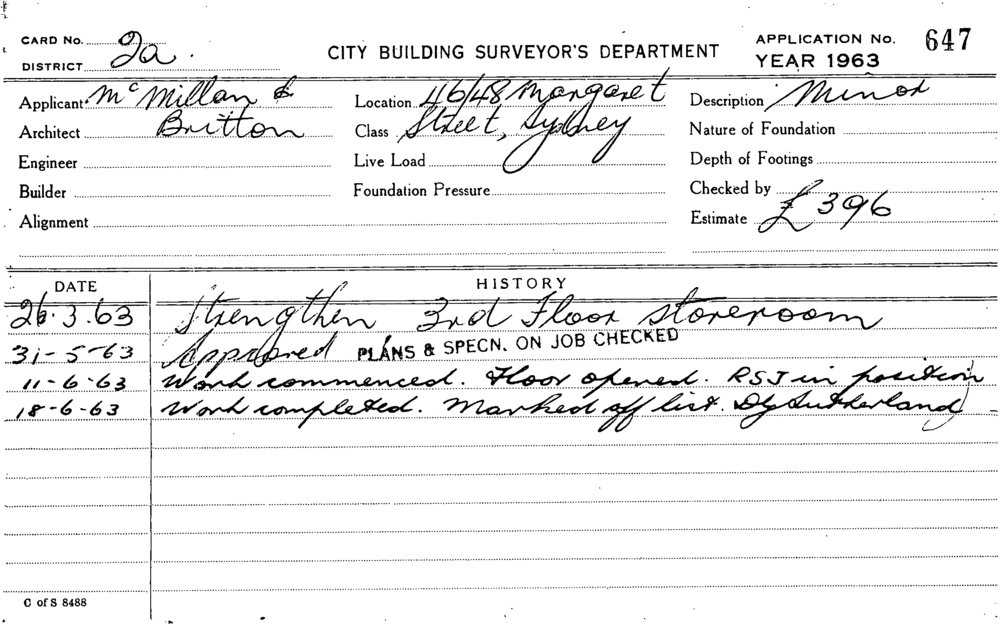 CARD No.
DISTRICT 2a.
CITY BUILDING SURVEYOR'S DEPARTMENT
APPLICATION No. 647
YEAR 1963
Applicant McMillan &
Architect Britton
Engineer
Builder
Alignment
Location 46/48 Margaret
Class Street, Sydney
Live Load
Foundation Pressure
Description Minor
Nature of Foundation
Depth of Footings
Checked by
Estimate £396
DATE HISTORY
26.3.63 Strengthen 3rd Floor storeroom
31-5-63 Approved PLANS & SPECN. ON JOB CHECKED
11-6-63 Work commenced. Floor opened. RSJ in position
18-6-63 Work completed. Marked off list. Sutherland
C of S 8488